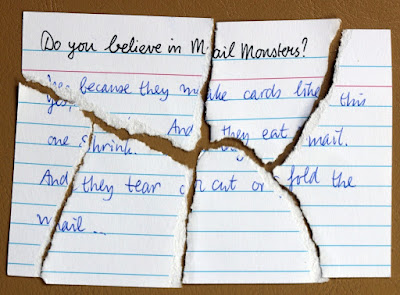 Do you believe in Mail Monsters?
Yes, because they make cards like this
one shrink. And they eat mail.
And they tear or cut or fold the
mail ...